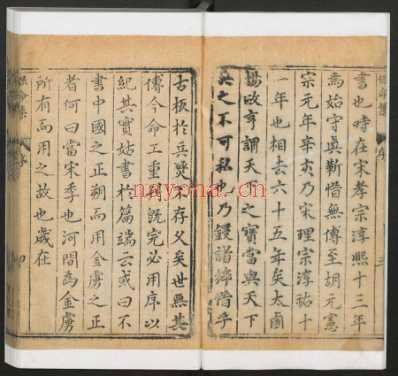 書也時在宋孝宗淳熙十三年
為始守真靳惜無傳至胡元憲
宗元年辛亥乃宋理宗淳祐十
一年也相去六十五年矣太鹵
楊威亨謂天下之寶當與天下
共之不可私也乃鋟諸梓惜乎
古板於兵燹不存久矣世無其
傳今命工重刊既完必用序以
紀其實姑書於篇端云或曰不
書中國之正朔而用金虜之正
者何曰當宋季也河間為金虜
所有而用之故也歲在
nayona.cn